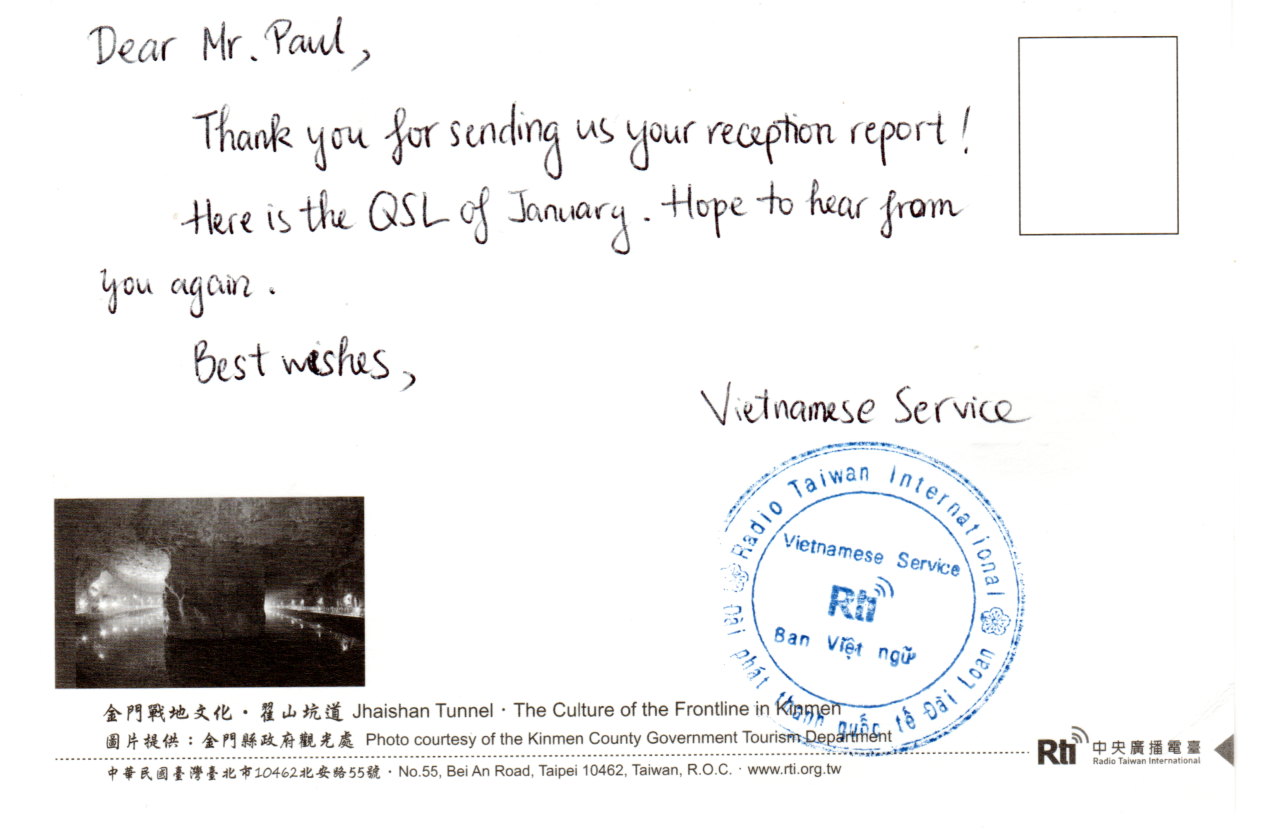 Dear Mr. Paul,
Thank you for sending us your reception report!
Here is the QSL of January. Hope to hear from
you again.
Best wishes,
Vietnamese Service
Radio Taiwan International
Vietnamese Service
Rti
Ban Việt ngữ
Đài phát thanh quốc tế Đài Loan
金門戰地文化·翟山坑道 Jhaishan Tunnel · The Culture of the Frontline in Kinmen
圖片提供：金門縣政府觀光處 Photo courtesy of the Kinmen County Government Tourism Department
中華民國臺灣臺北市10462北安路55號·No.55, Bei An Road, Taipei 10462, Taiwan, R.O.C. · www.rti.org.tw
Rti 中央廣播電臺
Radio Taiwan International